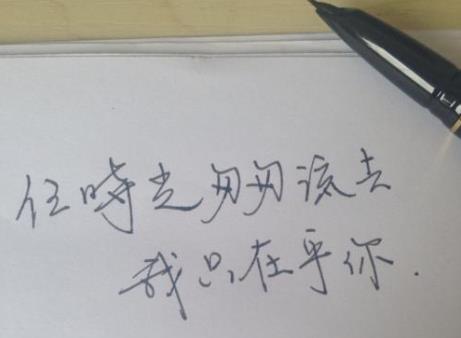 任時光匆匆流去
我只在乎你.